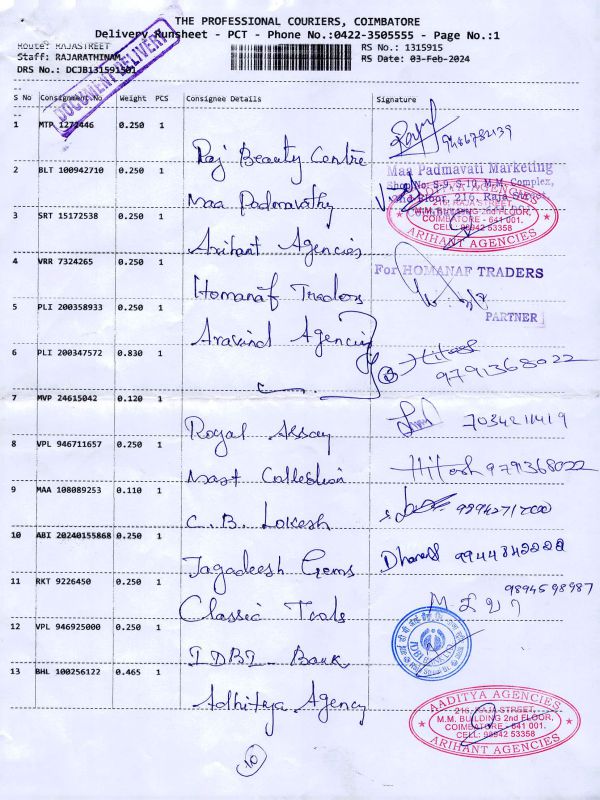 THE PROFESSIONAL COURIERS, COIMBATORE
Delivery Runsheet - PCT - Phone No.:0422-3505555 - Page No.:1
Route: RAJASTREET
RS No.: 1315915
Staff: RAJARATHINAM
RS Date: 03-Feb-2024
DRS No.: DCJB131591501
DOCUMENT DELIVERY
S No Consignment No Weight PCS Consignee Details Signature
1 MTP 1272446 0.250 1 Raj Beauty Centre 9486732139
2 BLT 100942710 0.250 1 Maa Padmavathy
Maa Padmavati Marketing
Shop No: S-9, S-10, M.M. Complex,
2nd Floor, 216, Raja Street
3 SRT 15172538 0.250 1 Arihant Agencies
AADITYA AGENCIES
216, RAJA STREET,
M.M. BUILDING 2nd FLOOR,
COIMBATORE - 641 001.
CELL: 98942 53358
ARIHANT AGENCIES
4 VRR 7324265 0.250 1 Homanaf Traders
For HOMANAF TRADERS
PARTNER
5 PLI 200358933 0.250 1 Aravind Agency
6 PLI 200347572 0.830 1 Hitesh 9791368022
7 MVP 24615042 0.120 1 Royal Assay 7034211419
8 VPL 946711657 0.250 1 Mast Collection Hitesh 9791368022
9 MAA 108089253 0.110 1 C.B. Lokesh
10 ABI 20240155868 0.250 1 Jagadeesh Gems Dhanesh 9944342222
11 RKT 9226450 0.250 1 Classic Tools 9894598987
12 VPL 946925000 0.250 1 IDBI - Bank
IDBI BANK LTD
13 BHL 100256122 0.465 1 Adhiteya Agency
AADITYA AGENCIES
216, RAJA STREET,
M.M. BUILDING 2nd FLOOR,
COIMBATORE - 641 001.
CELL: 98942 53358
ARIHANT AGENCIES
10